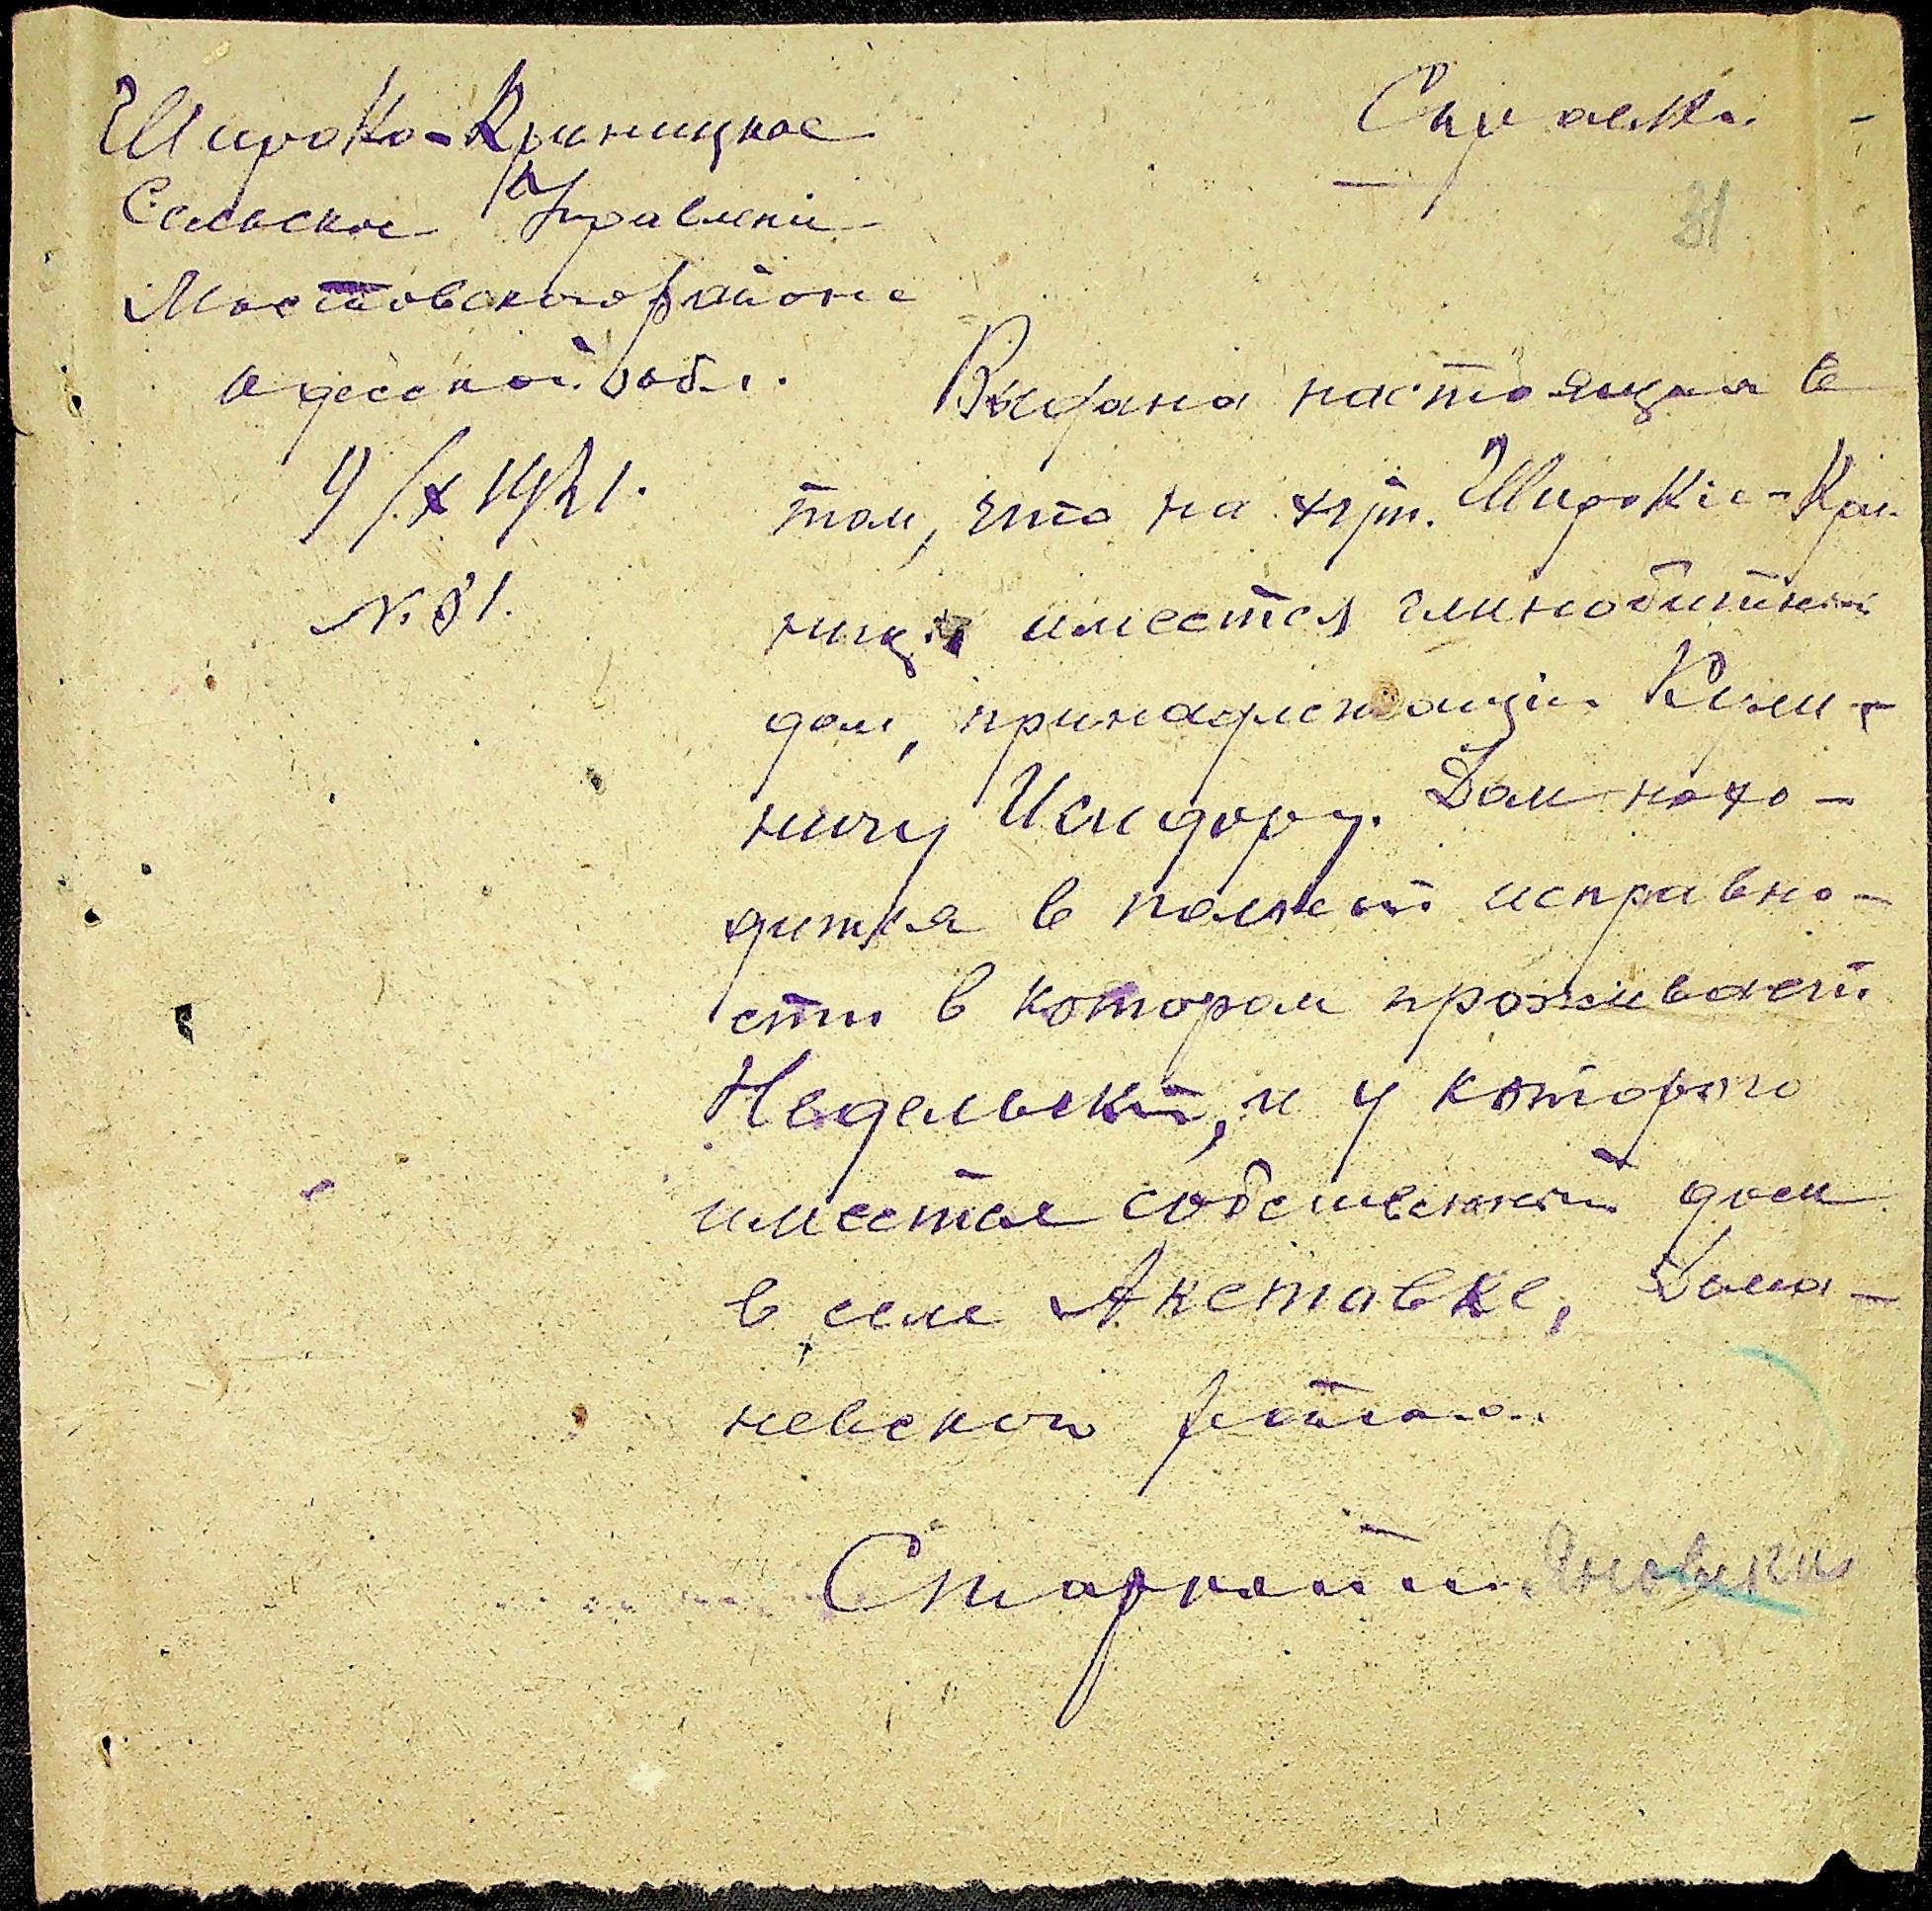 Широко-Криницкое
Сельское Управление
Мостовского района
Одесской обл.
9/X 1941.
№ 81.
Справка
31
Выдана настоящая в
том, что на хут. Широкіе-Кри-
ницы имеется глинобитный
дом, принадлежащій
ничу Исидору. Дом нахо-
дится в полной исправно-
сти в котором проживает
Недельский, и у которого
имеется собственный дом
в селе Акставке, Дома-
невского района.
Староста Яновский